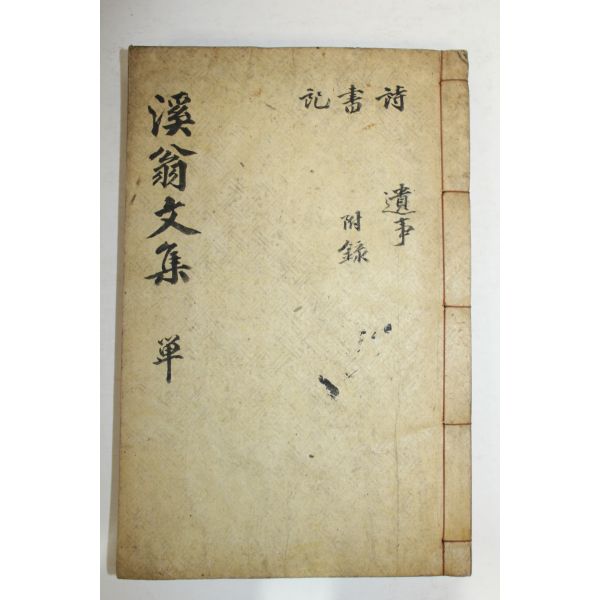 溪翁文集 単
詩 書 記
遺事
附錄